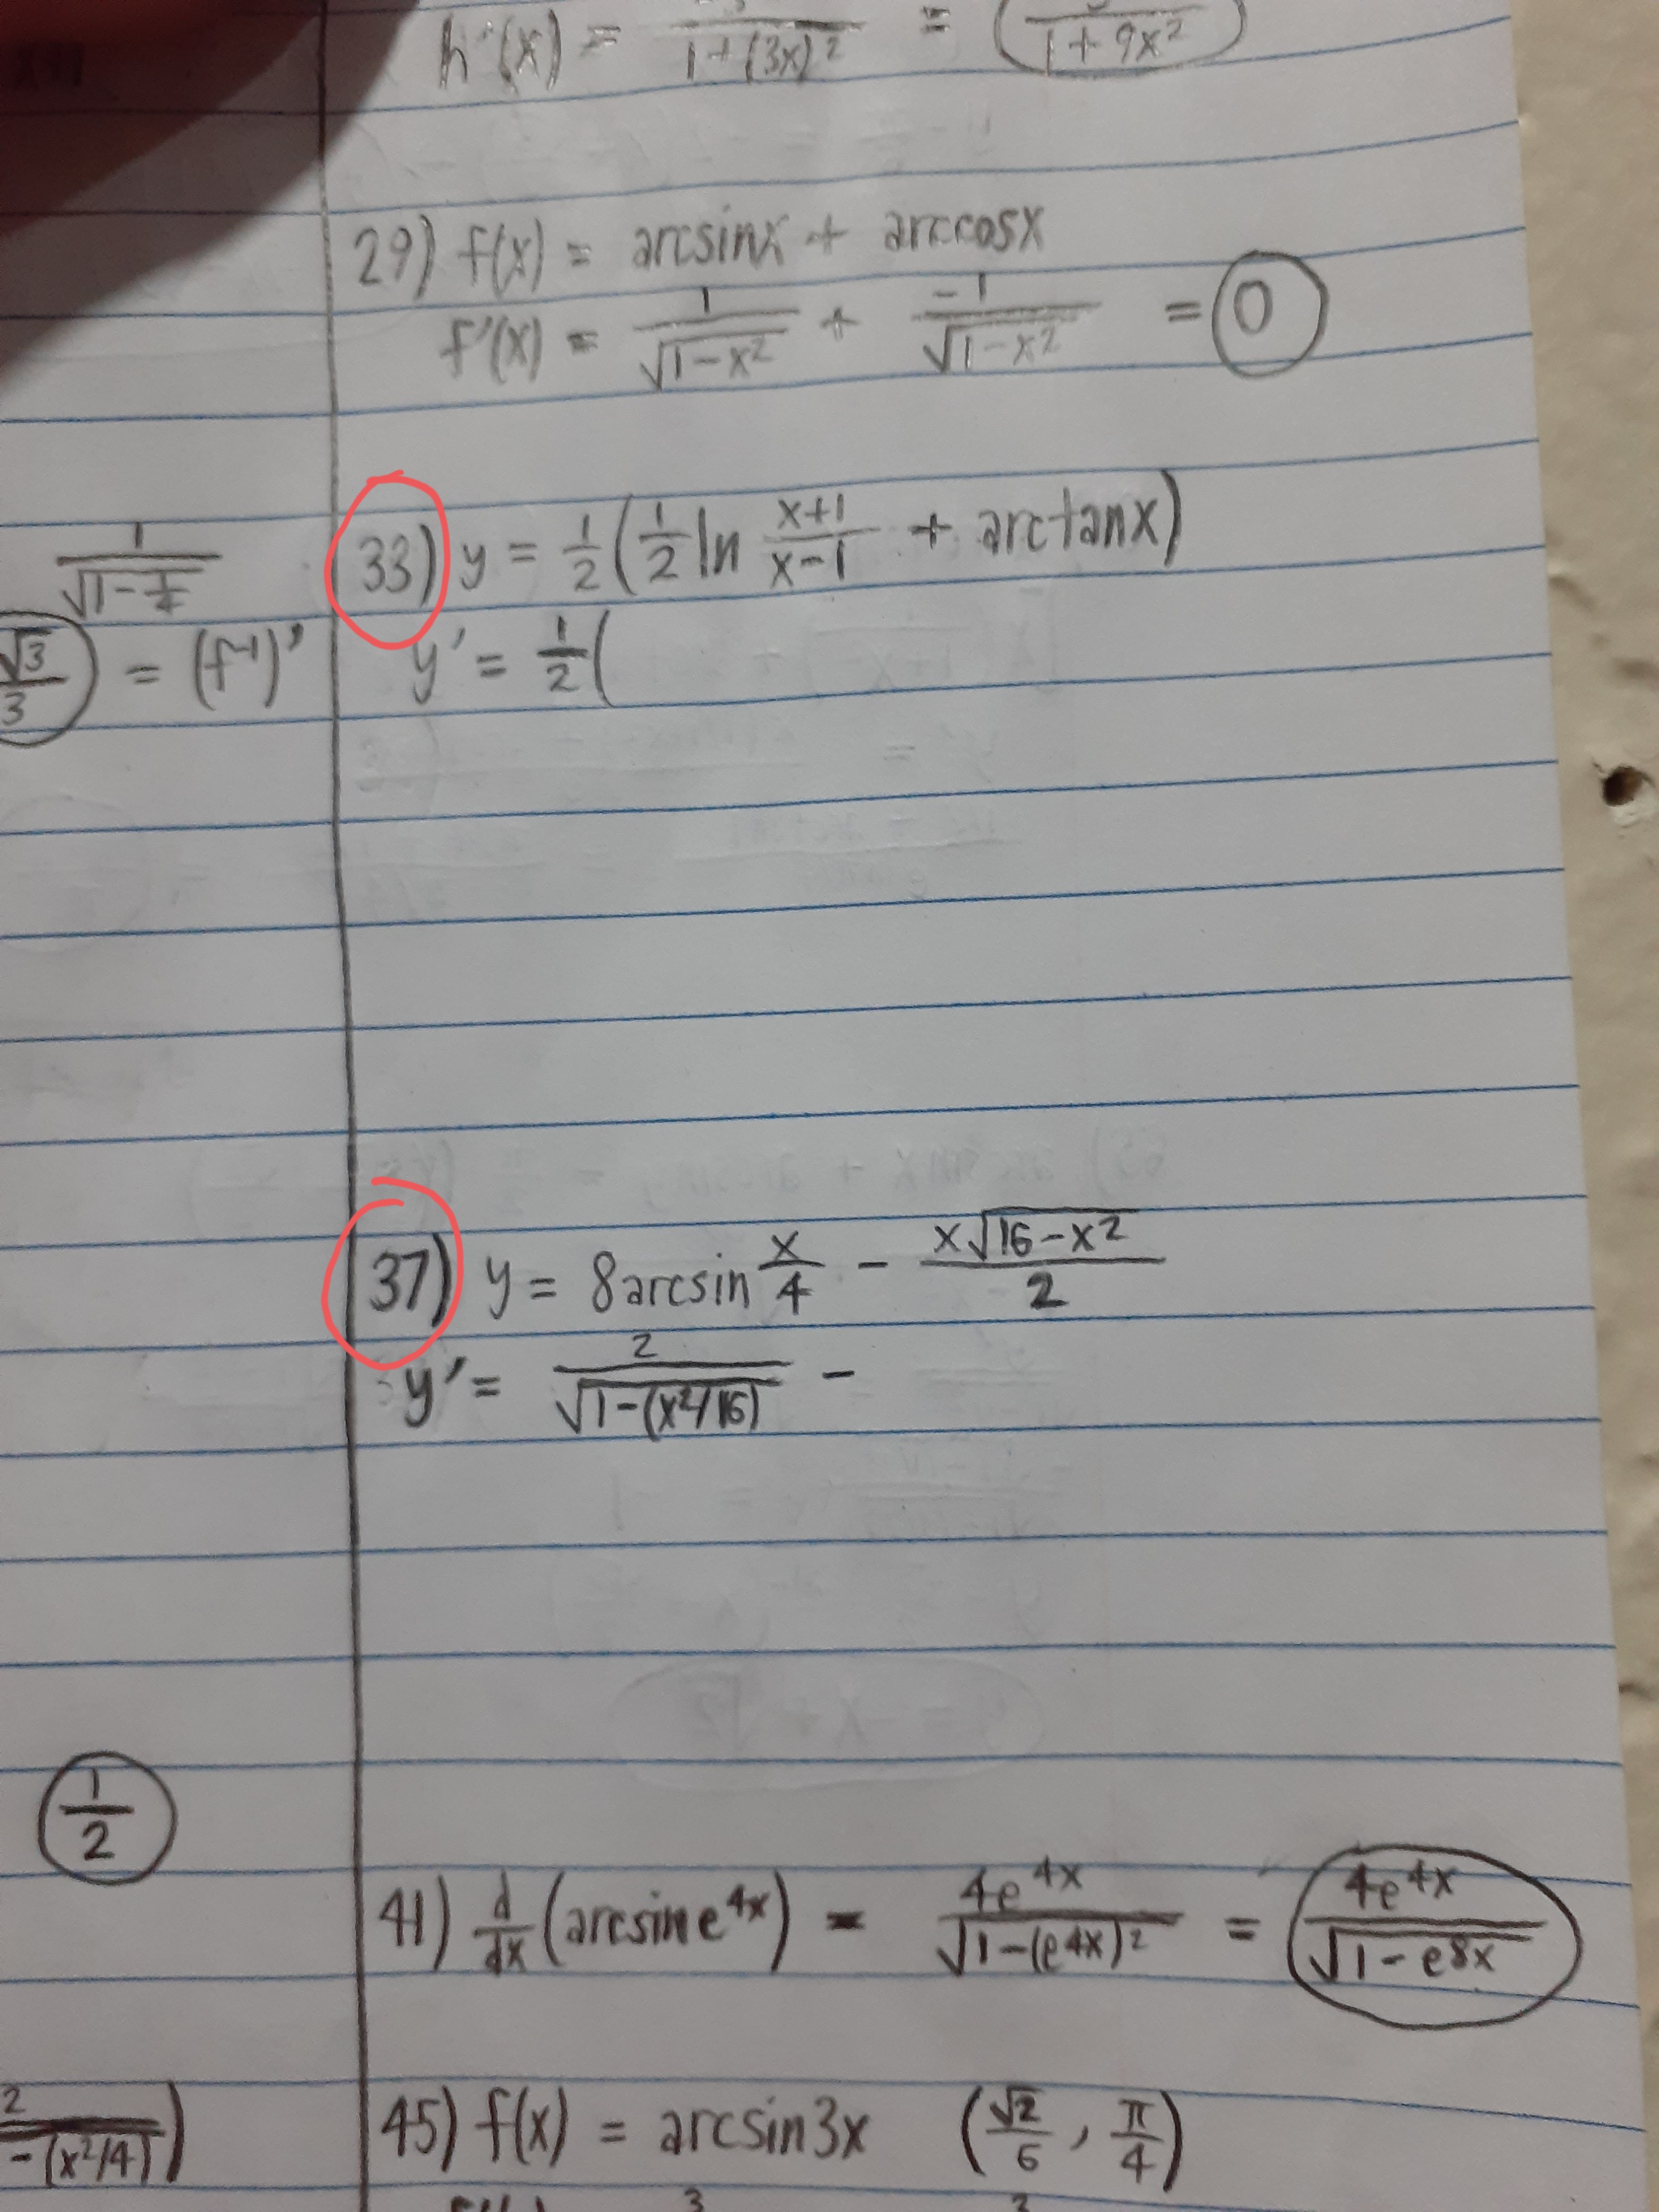 h'(x) = /1+(3x)² = /1+9x²
29) f(x) = arcsinx + arccosx
f'(x) = 1/√1-x² + -1/√1-x² = 0
1/√1-1/4
33) y = 1/2(1/2 ln x+1/x-1 + arctanx)
√3/3 = (f⁻¹)'
y' = 1/2(
37) y = 8arcsin x/4 - x√16-x²/2
y' = 2/√1-(x²/16) -
1/2
41) d/dx (arcsine⁴ˣ) = 4e⁴ˣ/√1-(e⁴ˣ)² = 4e⁴ˣ/√1-e⁸ˣ
45) f(x) = arcsin3x (√2/6, π/4)
2/-(x²/4))